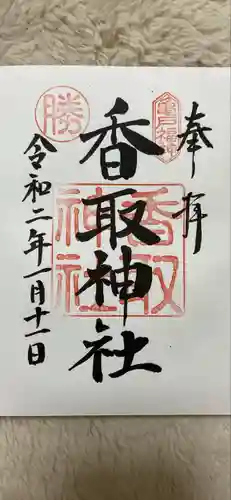 奉拝
香取神社
令和二年一月十一日
勝
香取
神社